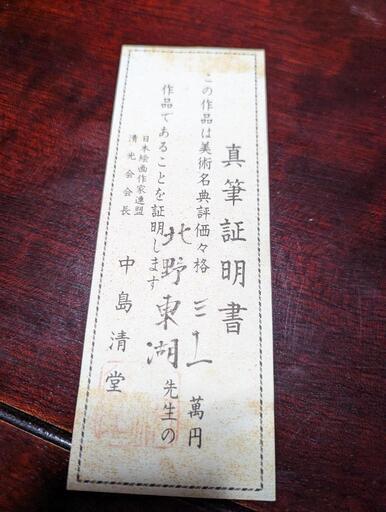 真筆証明書
この作品は美術名典評価々格 三十 萬円
北野東湖先生の
作品であることを証明します
日本絵画作家連盟
清光会会長 中島清堂